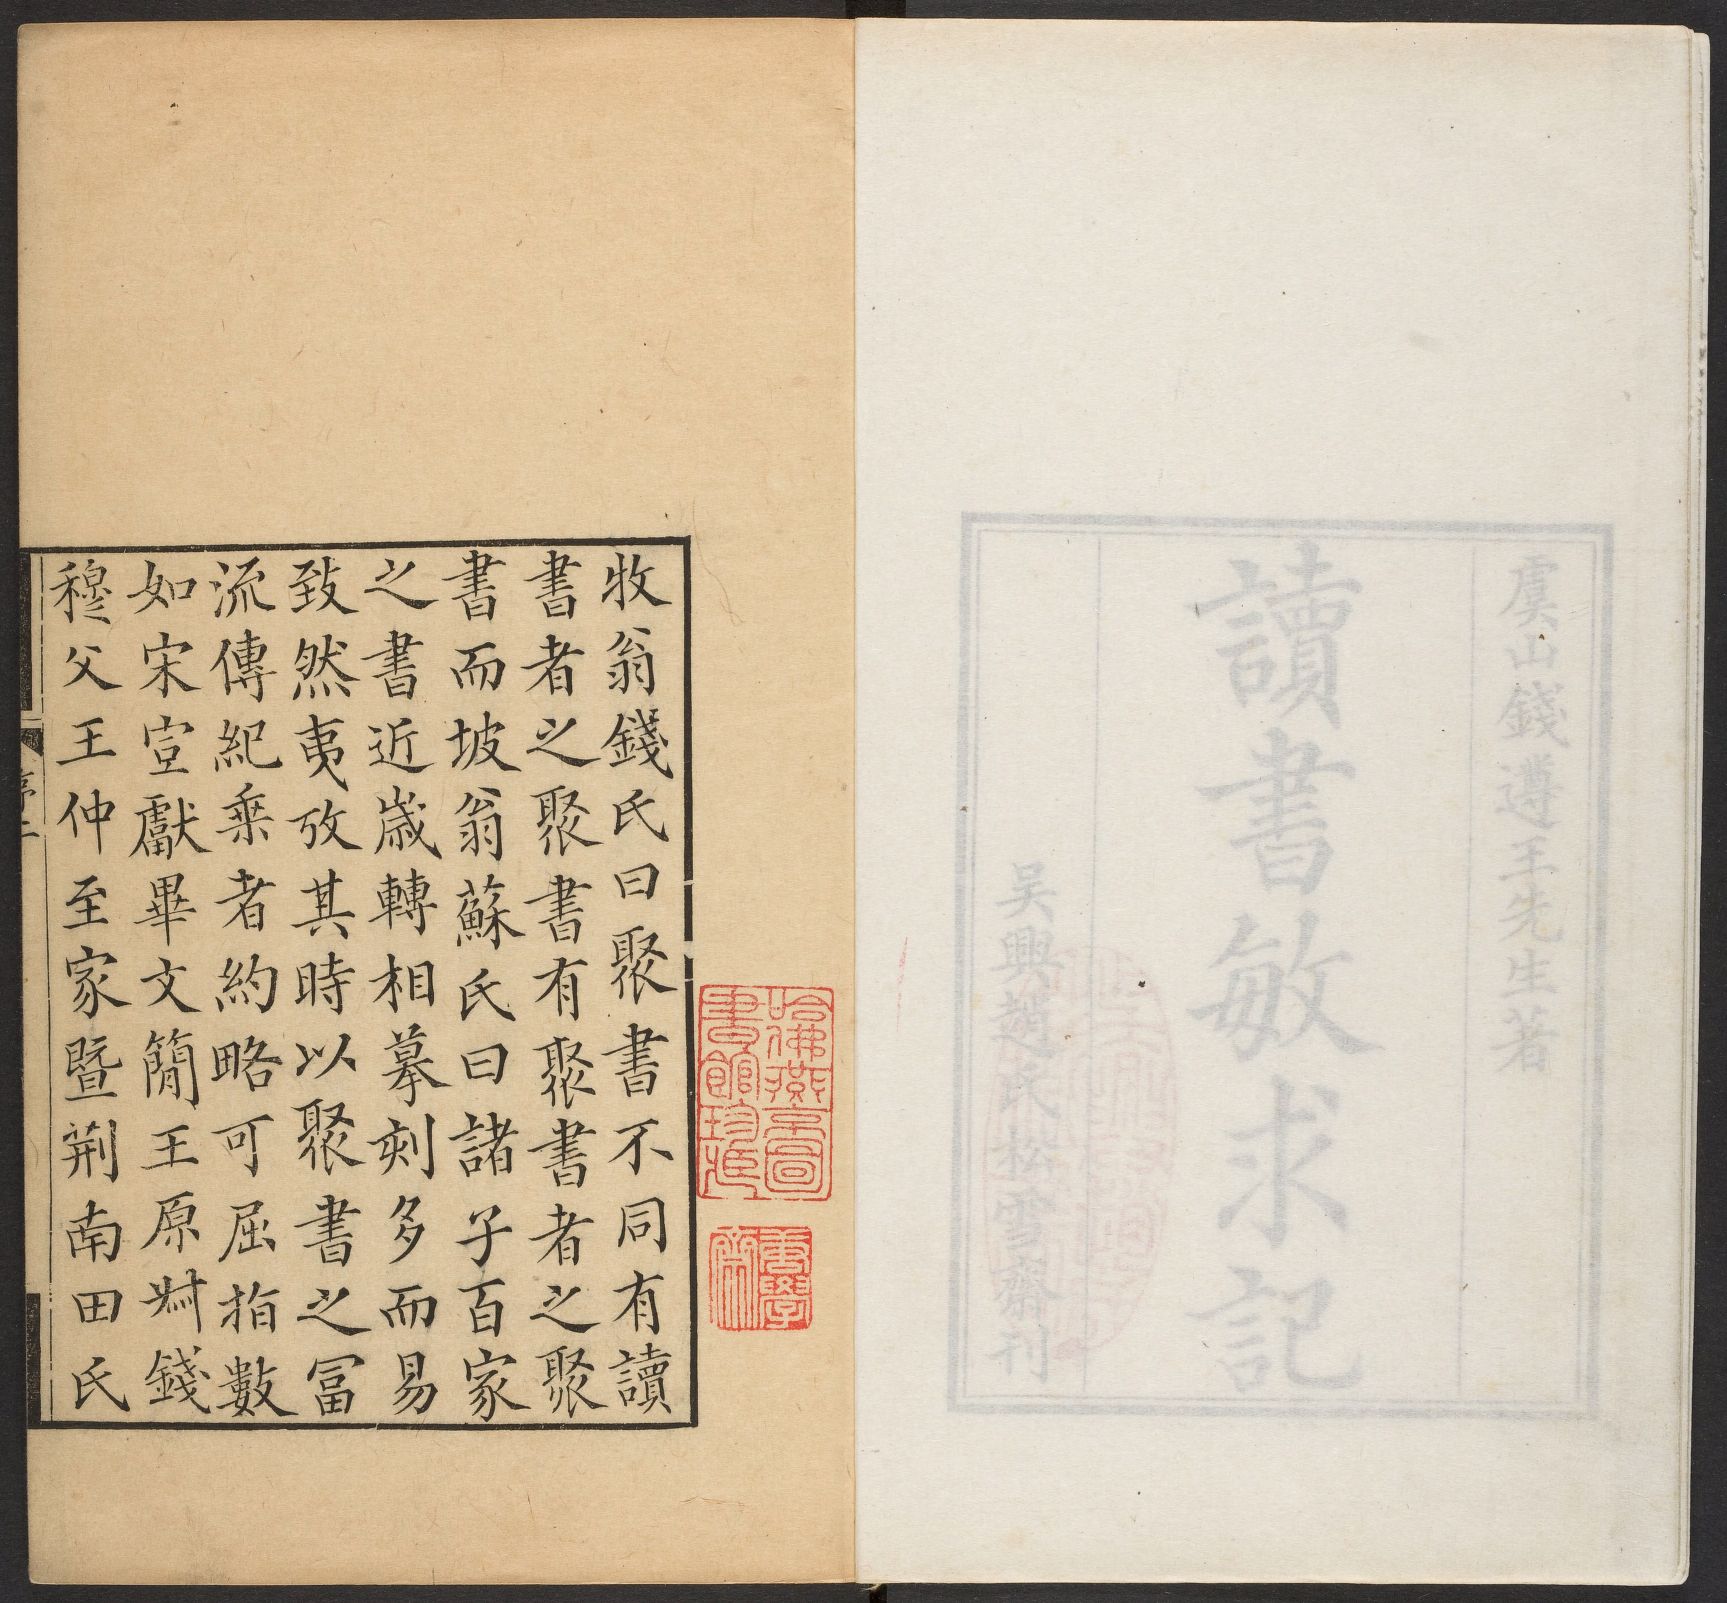 虞山錢遵王先生著
讀書敏求記
吴興趙氏松雪齋刊
哈佛燕京圖書館珍藏
牧翁錢氏曰聚書不同有讀
書者之聚書有聚書者之聚
書而坡翁蘇氏曰諸子百家
之書近歲轉相摹刻多而易
致然夷攷其時以聚書之冨
流傳紀乗者約略可屈指數
如宋宣獻畢文簡王原叔錢
穆父王仲至家暨荆南田氏
序二